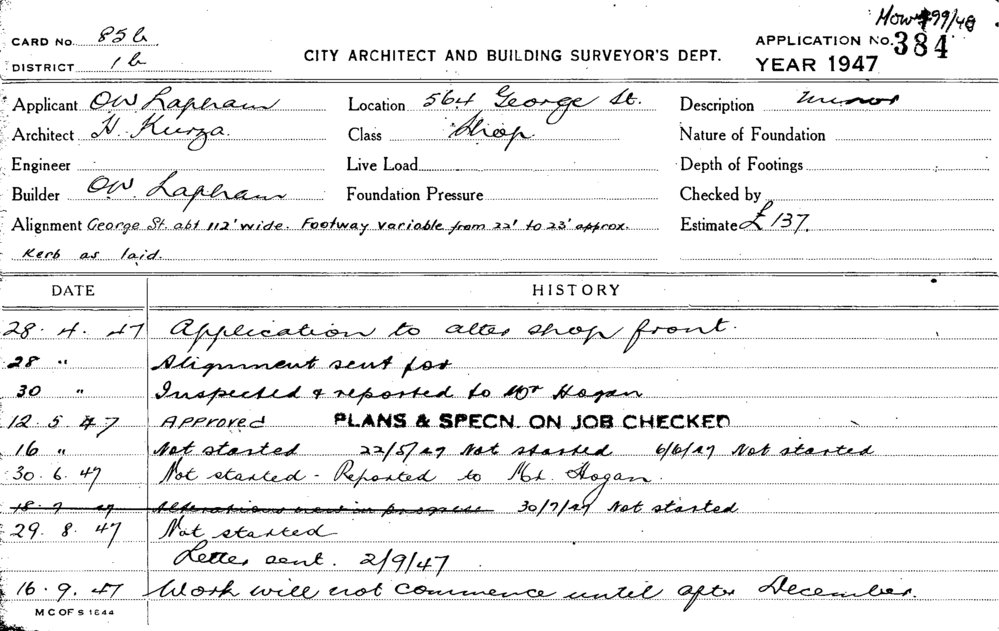 How 99/48
CARD No. 85b
APPLICATION No. 384
DISTRICT 1b
CITY ARCHITECT AND BUILDING SURVEYOR'S DEPT.
YEAR 1947
Applicant OW Lapham Location 564 George St. Description Minor
Architect H. Kurza. Class Shop. Nature of Foundation
Engineer Live Load Depth of Footings
Builder OW. Lapham Foundation Pressure Checked by
Alignment George St. abt 112' wide. Footway variable from 22' to 23' approx. Estimate £137.
Kerb as laid.
DATE HISTORY
28. 4. 47 Application to alter shop front.
28 " Alignment sent for
30 " Inspected & reported to Mr Hogan
12. 5. 47 Approved PLANS & SPECN. ON JOB CHECKED
16 " Not started 22/5/47 Not started 6/6/47 Not started
30. 6. 47 Not started - Reported to Mr. Hogan.
18. 7 47 Alterations now in progress 30/7/47 Not started
29. 8. 47 Not started
Letter sent. 2/9/47
16. 9. 47 Work will not commence until after December.
M C OF S 1644